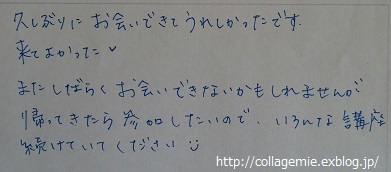 久しぶりに お会いできて うれしかったです.
来てよかった♡
またしばらく お会いできないかもしれませんが
帰ってきたら 参加したいので、いろんな講座
続けていてください☺
http://collagemie.exblog.jp/